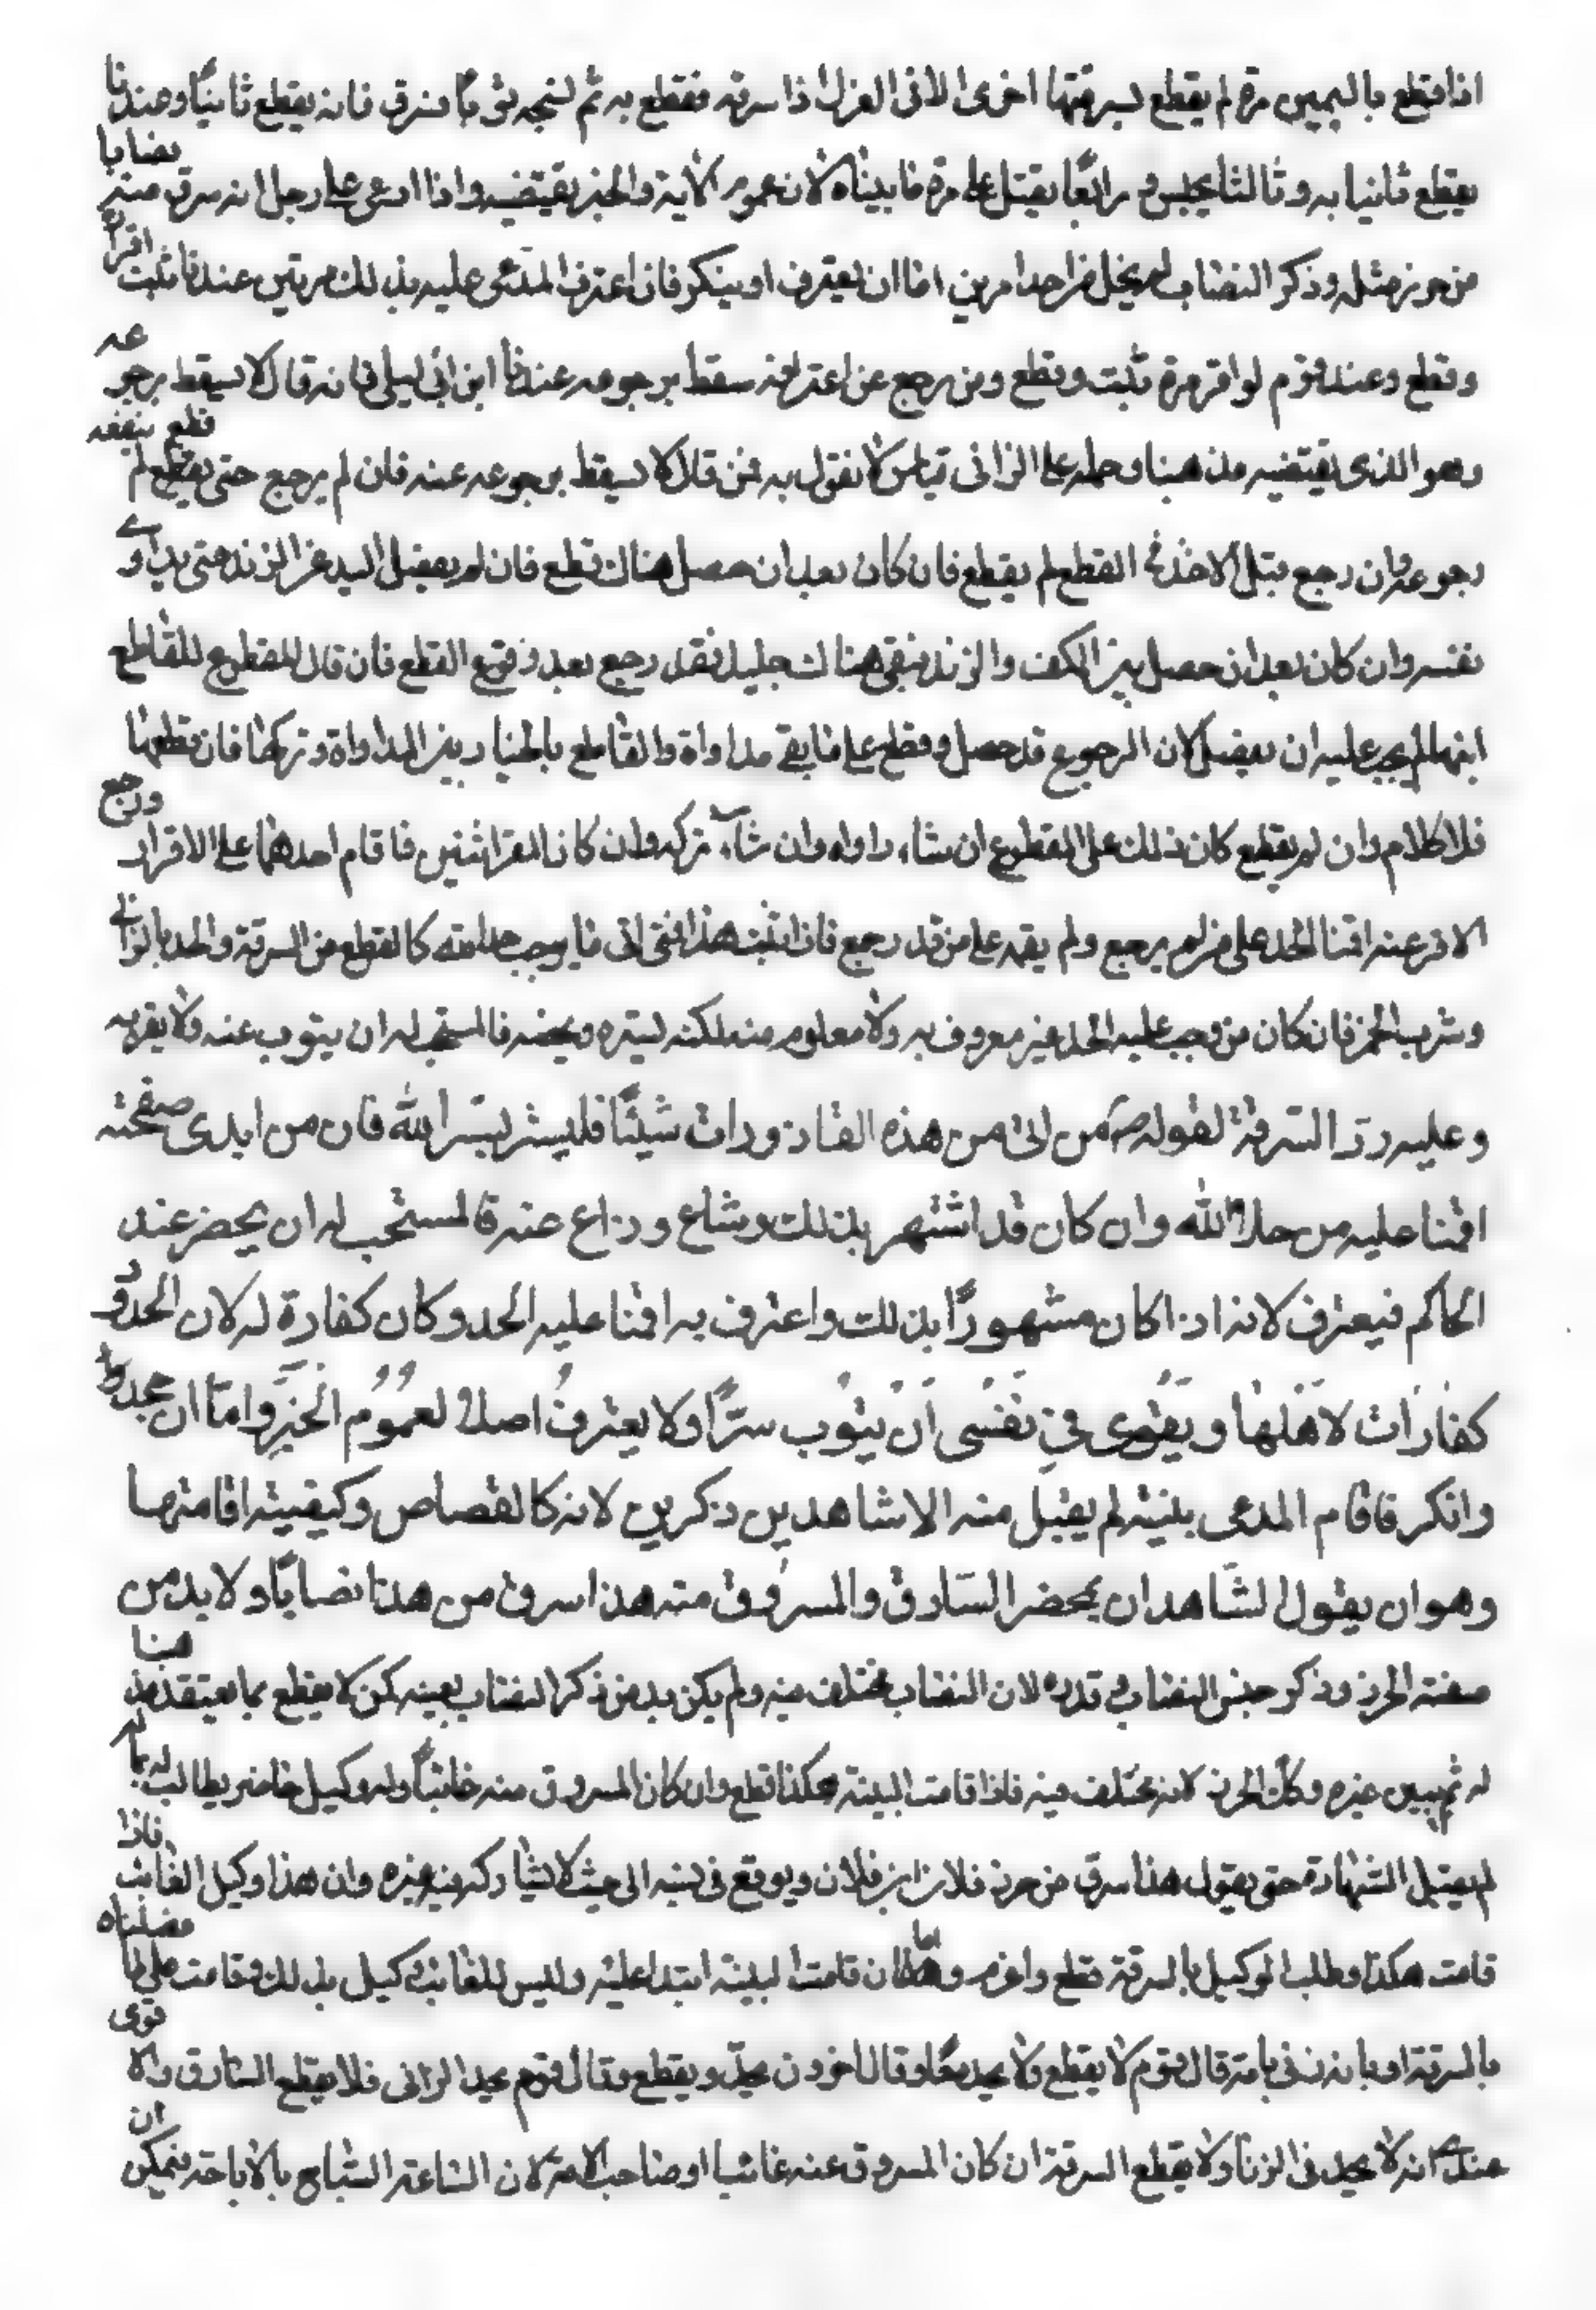 اذا قطع بالیمین مرة لم يقطع بسرقتها اخری الا فی الغزل اذا سرقه فقطع به ثم نسجه ثوبا فسرق فانه يقطع ثانيًا وعندنا
يقطع ثانيا به وثالثا يحبس ورابعًا يقتل على مرة ما بيناه لان عموم الاية والخبر يقتضيه واذا ادعى على رجل انه سرق منه نصابا
من حرز مثله وذكر النصاب لم يخل من احد امرين اما ان يعترف او ينكر فان اعترف المدعى عليه بذلك مرتين عندنا ثبت اقراره
وقطع وعند قوم لو اقر مرة ثبت وقطع ومن رجع عن اعترافه سقط برجوعه عندنا ابن ابی ليلى فانه قال لا يسقط برجوعه
وهو الذى يقتضيه مذهبنا وحمله على الزانى قياس لا نقول به فمن قال لا يسقط برجوعه عنه فان لم يرجع حتى يقطع لم ينفعه
رجوعه وان رجع قبل الاخذ فی القطع لم يقطع فان كان بعد ان حصل هناك قطع فان لم يفصل اليد عن الزند حتى يداوى
نفسه وان كان بعد ان حصل بين الكف والزند فبقى هناك جليد فقد رجع بعد وقوع القطع فان قال المقطوع للقاطع
ابنها لم يجب عليه ان يفصل لان الرجوع قد حصل وقطع على ما بقى مداواة والقاطع بالخيار بين المداواة وتركها فان قطعها
فلا كلام وان لم يقطع كان ذلك على المقطوع ان شاء داواه وان شاء تركه وان كانا المقر اثنين فاقام احدهما على الاقرار ورجع
الاخر عنه اقمنا الحد على من لم يرجع ولم يقمه على من قد رجع فاذا ثبت هذا فمتى اتى ما يوجب حد الله كالقطع من السرقة والحد بالزنا فی
وشرب الخمر فان كان من وجب عليه الحد غير معروف به ولا معلوم منه لكنه يستره ويخفيه فالمستحب له ان يتوب عنه ولا يقر به
وعليه رد السرقة لقوله ص من اتى من هذه القاذورات شيئًا فليستر بستر الله فان من ابدى صفحته
اقمنا عليه من حد الله وان كان قد اشتهر بذلك وشاع وذاع عنه فالمستحب له ان يحضر عند
الحاكم فيعترف لانه اذا كان مشهورًا بذلك واعترف به اقمنا عليه الحد وكان كفارة له لان الحدود
كفارات لاهلها ويقوى فى نفسى ان يتوب سرًّا ولا يعترف اصلا لعموم الخبر واما ان يجدها
وانكر فاقام المدعى بينة لم يقبل منه الا شاهدين ذكرين لانه كالقصاص وكيفية اقامتها
وهو ان يقول الشاهدان يحضر السّارق والمسروق منه هذا سرق من هذا نصابًا ولا بد من
صفة الحرز وذكر جنس النصاب فی قدره لان النصاب مختلف فيه ولم يكن بد من ذكر النصاب بعينه كن لا يقطع بما يعتقد مذهبنا
له ثم يبين غيره وكك الحرز لانه يختلف فيه فاذا قامت البينة هكذا قطع وان كان المسروق منه غائبًا وله وكيل حاضر يطالب له بماله
لم يقبل الشهادة حتى يقول هذا سرق من حرز فلان ابن فلان ويوقع فی نسبه الى حيث لا يشاركه فيه غيره وان هذا وكيل الغائب فاذا
قامت هكذا وطلب الوكيل بالسرقة قطع واغرم واما ان قامت البينة ابتدا عليه وليس للغائب وكيل بذلك وقامت على ما فصلناه
بالسرقة او بانه زنى بامة قال قوم لا يقطع ولا يحد معًا وقال اخرون يحد ويقطع وقال قوم يحد الزانى فلا يقطع السارق والاقوى
عندى انه لا يحد فى الزنا ولا يقطع السرقة ان كان المسروق عنه غائبا او صاحب الامة لان الساعة الستباح بالاباحة فيمكن ان